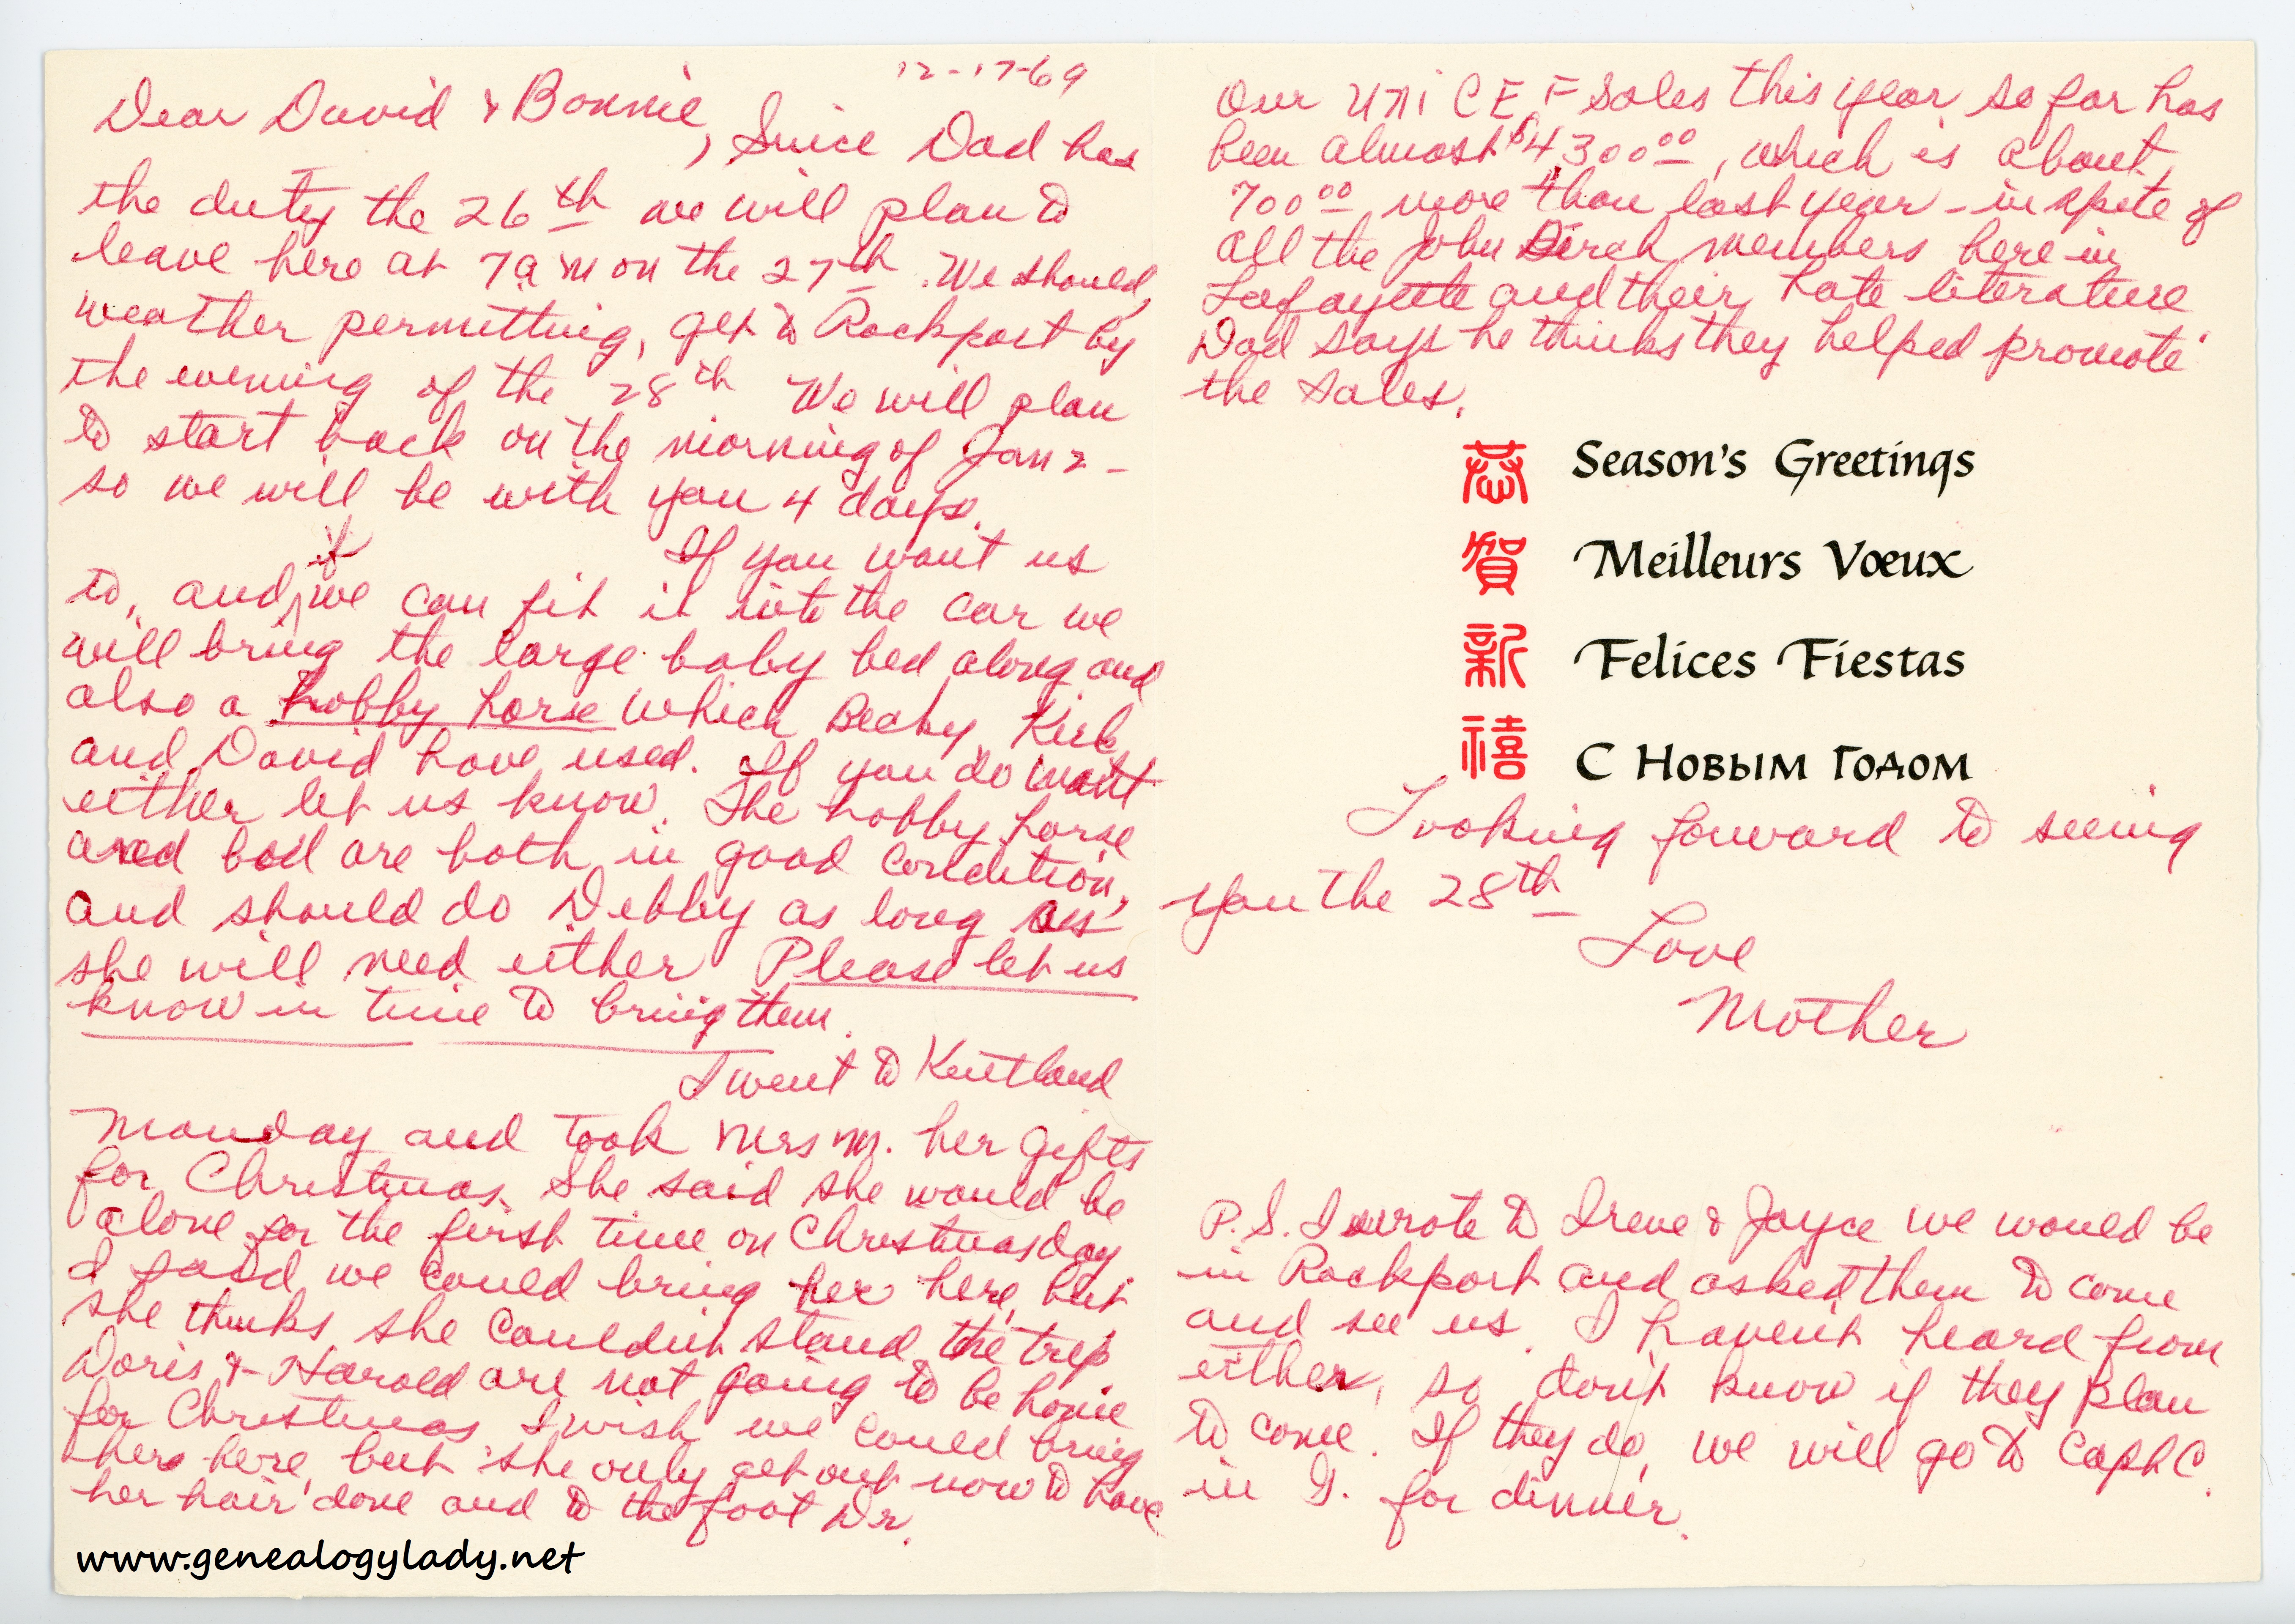 12-17-69
Dear David & Bonnie,
Since Dad has
the duty the 26th we will plan to
leave here at 7 a m on the 27th. We should,
weather permitting, get to Rockport by
the evening of the 28th We will plan
to start back on the morning of Jan 2 -
so we will be with you 4 days.
If you want us
to, and if we can fit it into the car we
will bring the large baby bed along and
also a hobby horse which Becky, Kirk,
and David have used. If you do want
either let us know. The hobby horse
and bed are both in good condition,
and should do Debby as long as
she will need either Please let us
know in time to bring them.
I went to Kentland
Monday and took Mrs M. her gifts
for Christmas. She said she would be
alone for the first time on Christmas day
I said we could bring her here, but
she thinks she couldn't stand the trip
Doris & Harold are not going to be home
for Christmas I wish we could bring
her here, but she only get out now to have
her hair done and to the foot Dr.
www.genealogylady.net
Our UNICEF sales this year so far has
been almost $4300.00, which is about
700.00 more than last year - in spite of
all the John Birch members here in
Lafayette and their hate literature
Dad says he thinks they helped promote
the sales.
恭 Season's Greetings
賀 Meilleurs Vœux
新 Felices Fiestas
禧 С Новым Годом
Looking forward to seeing
you the 28th
Love
Mother
P.S. I wrote to Irene & Joyce we would be
in Rockport and asked them to come
and see us. I haven't heard from
either, so don't know if they plan
to come. If they do, we will go to Capt C.
in G. for dinner.